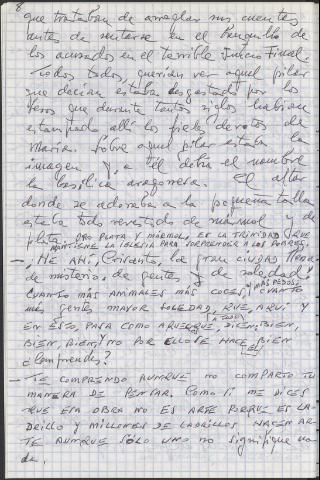 8
que trataban de arreglar sus cuentas
antes de sentarse en el banquillo de
los acusados en el terrible Juicio Final.
Todos, todos, querían ver aquel pilar
que decían estaba desgastado por los
besos que durante tantos siglos habían
estampado allí los fieles devotos de
María. Sobre aquel pilar estaba la
imagen y a él debía el nombre
la basílica aragonesa. El altar
donde se adoraba a la pequeña talla
estaba todo revestido de mármol y de
plata. ORO PLATA Y MÁRMOL, ES LA TRINIDAD QUE
MANTIENE LA IGLESIA PARA SORPRENDER A LOS POBRES.
- ¡HE AHÍ, la gran ciudad llena
de misterio, de gentes y de soledad!
CUANTO MÁS ANIMALES MÁS COCES, MÁS PEDOS Y CUANTO
más gentes MAYOR SOLEDAD, QUE, AQUÍ Y
EN ESTO, PASA COMO AQUEL QUE, A TODO, DICE: BIEN,
BIEN, BIEN, Y NO POR ELLO SE HACE BIEN
¿Comprendes?
- TE COMPRENDO AUNQUE NO COMPARTO TU
MANERA DE PENSAR. COMO SI ME DICES
QUE ESA OBRA NO ES ARTE PORQUE ES LA-
DRILLO Y MILLONES DE LADRILLOS HACEN AR-
TE AUNQUE SÓLO UNO NO SIGNIFIQUE NA-
DA.